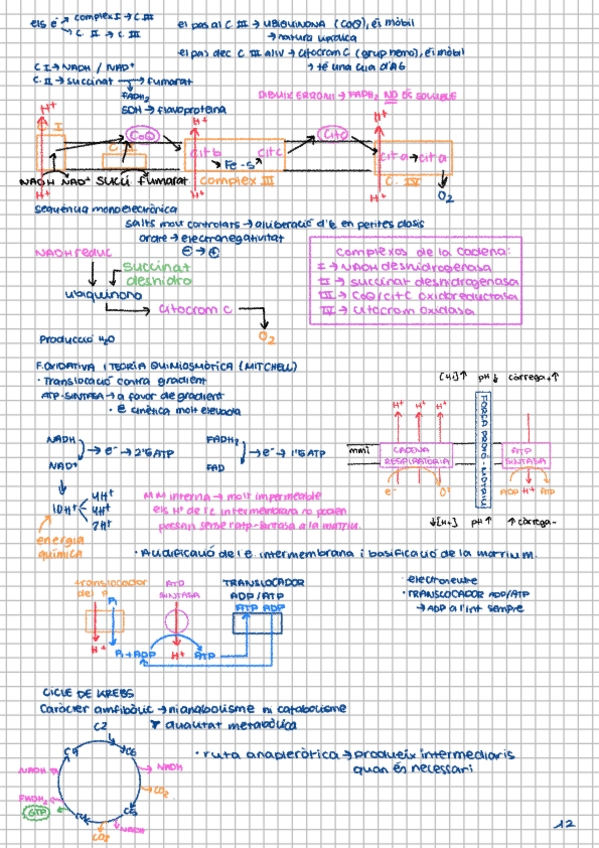 els e⁻ complex I → C.III
C II → C III
el pas al C III → UBIQUINONA (CoQ), és mòbil
→ natura lipídica
el pas del C III al IV → citocrom C (grup hemo), és mòbil
→ té una cua d'AG
C I → NADH / NAD⁺
C. II → succinat → fumarat
FADH₂
SDH → flavoproteïna
DIBUIX ERRONI → FADH₂ NO ÉS SOLUBLE
H⁺ H⁺ H⁺
C. I CoQ CitC
cit b cit c cit a → cit a
Fe-S
NADH NAD⁺ succi fumarat complex III C. IV
H⁺ H⁺ H⁺ O₂
seqüència monoelectrònica
salts molt controlats → alliberació d'e⁻ en petites dosis
ordre → electronegativitat
⊖ → ⊕
NADH reduc
succinat
deshidro
ubiquinona
citocrom c
O₂
Complexos de la cadena:
I → NADH deshidrogenasa
II → succinat deshidrogenasa
III → CoQ/cit C oxidoreductasa
IV → citocrom oxidasa
Producció H₂O
F. OXIDATIVA I TEORIA QUIMIOSMÒTICA (MITCHELL)
· Translocació contra gradient
ATP-SINTASA → a favor de gradient
· E cinètica molt elevada
[H⁺]↑ pH↓ càrrega +↑
H⁺ H⁺ H⁺ H⁺
FORÇA PROTÓ-MOTRIU
mmi CADENA RESPIRATÒRIA ATP SINTASA
e⁻ O₂ ADP H⁺ ATP
↓[H⁺] pH↑ ↑càrrega-
NADH → e⁻ → 2'5 ATP
NAD⁺
FADH₂ → e⁻ → 1'5 ATP
FAD
10H⁺ 4H⁺
4H⁺
2H⁺
energia
química
MM interna → molt impermeable
els H⁺ de l'e intermembrana no poden
passar sense l'atp-sintasa a la matriu.
· Acidificació de l'e. intermembrana i basificació de la matriu.
translocador
del P
ATP
SINTASA
TRANSLOCADOR
ADP/ATP
Pi ATP ADP
H⁺ Pi + ADP H⁺ ATP
· electroneutre
· TRANSLOCADOR ADP/ATP
→ ADP a l'int sempre
CICLE DE KREBS
Caràcter amfibòlic → ni anabolisme ni catabolisme
dualitat metabòlica
C2
C4 C6
NADH NADH
CO₂
FADH₂ C5
GTP C4
CO₂ NADH
· ruta anapleròtica → produeix intermediaris
quan és necessari
12